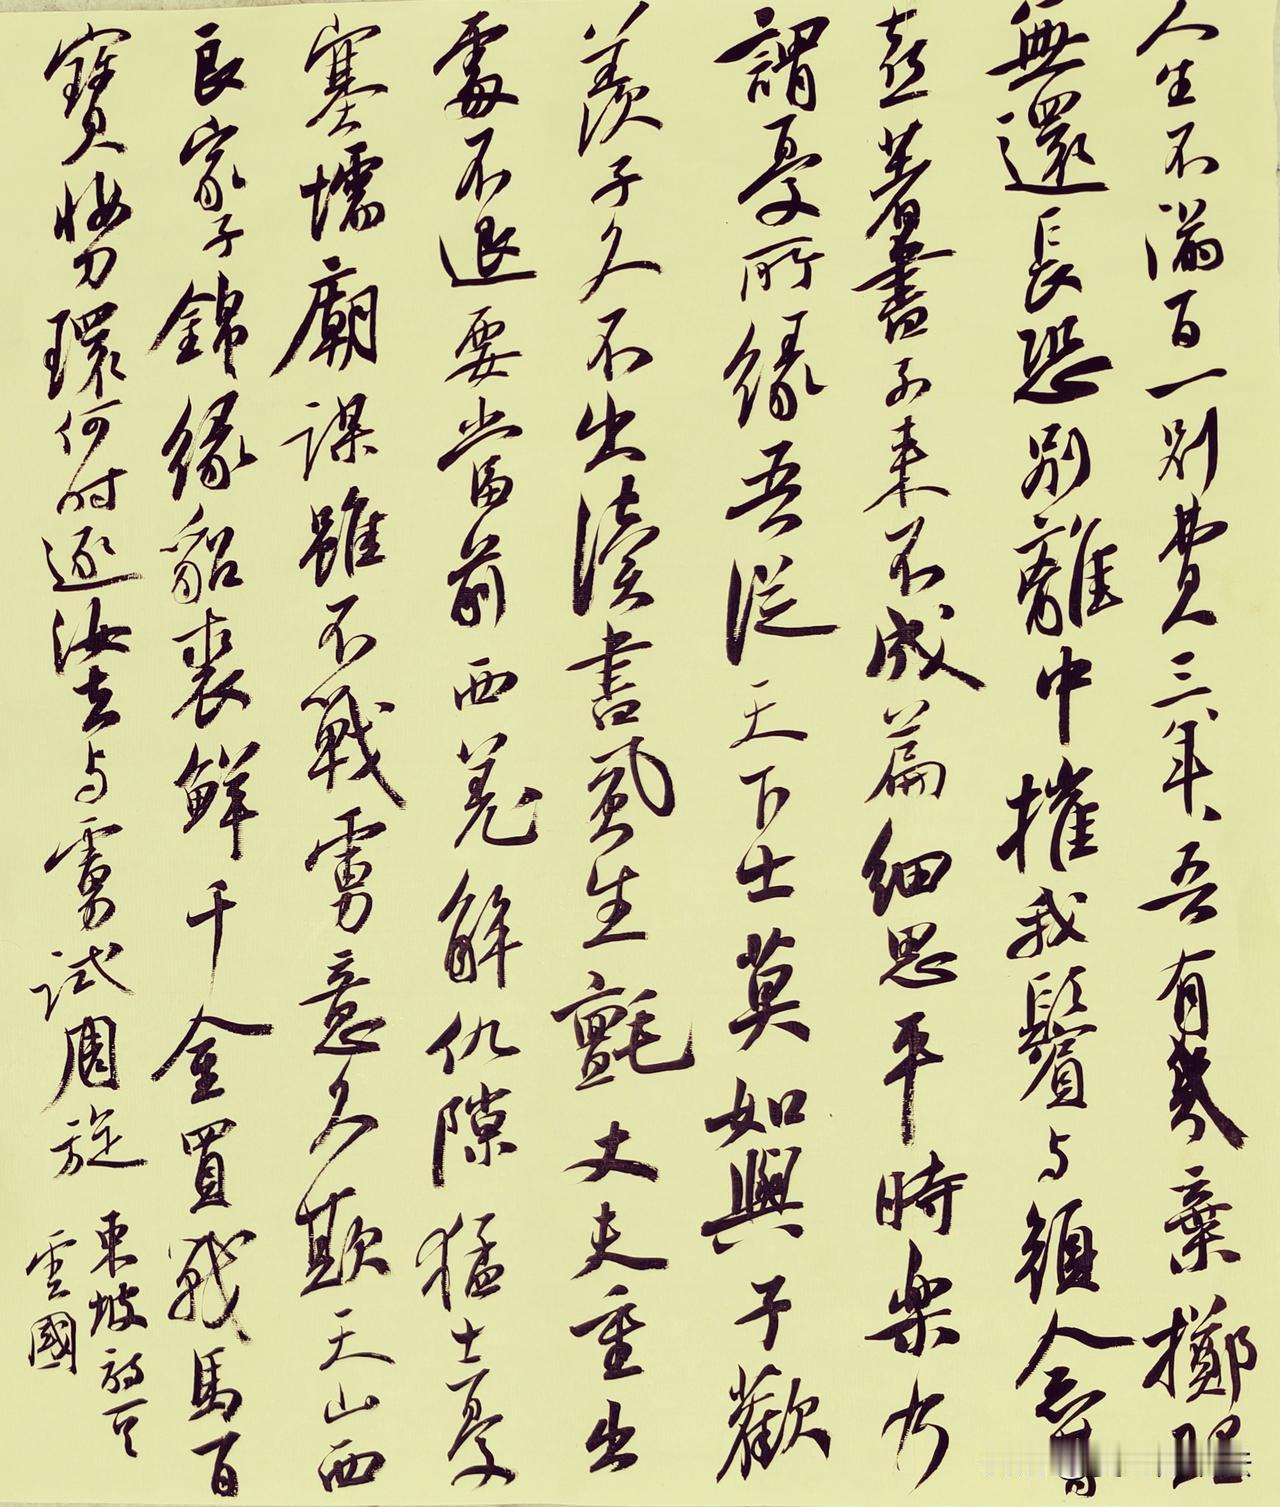 人生不滿百一别費三年、吾有幾棄擲理
無還長恐别離中摧我鬢与顏念昔
喜著書别来不成篇細思平時樂乃
謂憂所緣吾從天下士莫如與子歡
羨子久不出讀書虱生氈丈夫重出
處不退要當前西羌解仇隙猛士憂
塞壖廟謀雖不戰虜意久欺天山西
良家子錦緣貂裘鮮千金買戰馬百
寶妝刀環何時逐汝去与虜試周旋
東坡詩
雲國